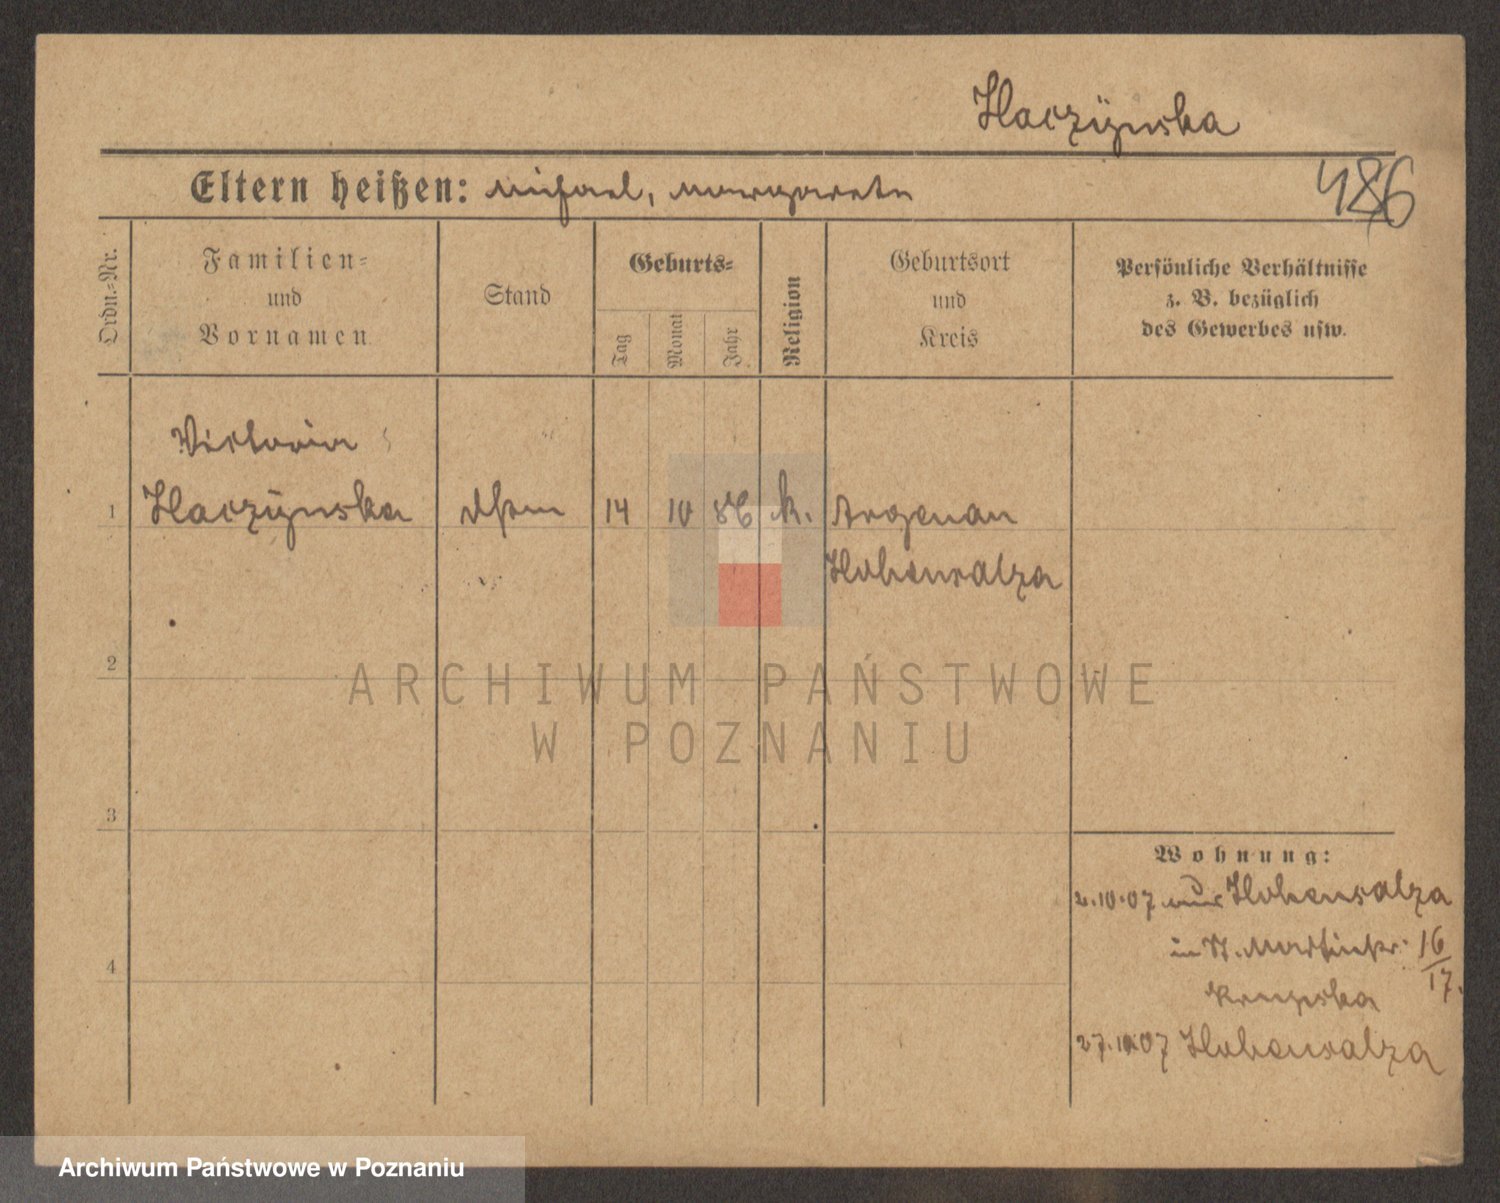 Haczÿnska
Eltern heißen: Michael, Margarete
486
Ordn.-Nr.
Familien-
und
Vornamen
Stand
Geburts-
Tag
Monat
Jahr
Religion
Geburtsort
und
Kreis
Persönliche Verhältnisse
z. B. bezüglich
des Gewerbes usw.
Victoria
1 Haczÿnska 14 10 86 k. Argenau
Hohensalza
2
ARCHIWUM PAŃSTWOWE
W POZNANIU
3
4
Wohnung:
2.10.07 aus Hohensalza
in St. Martinstr. 16/17.
27. 07 Hohensalza
Archiwum Państwowe w Poznaniu